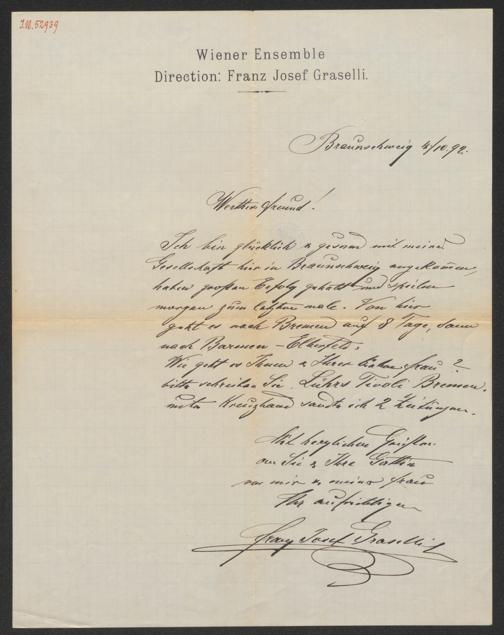 I.N. 52939
Wiener Ensemble
Direction: Franz Josef Graselli.
Braunschweig 4/10.92.
Werther Freund!
Ich bin glücklich & gesund mit meiner
Gesellschaft hier in Braunschweig angekommen,
haben großen Erfolg gehabt und spielen
morgen zum letzten male. Von hier
geht es nach Bremen auf 8 Tage, dann
nach Barmen-Elberfeld.
Wie geht es Ihnen & Ihrer lieben Frau?
bitte schreiben Sie Lührs Tivoli Bremen.
unter Kreuzband sandte ich 2 Zeitungen.
Mit herzlichen Grüßen
an Sie & Ihre Gattin
von mir & meiner Frau
Ihr aufrichtiger
Franz Josef Graselli